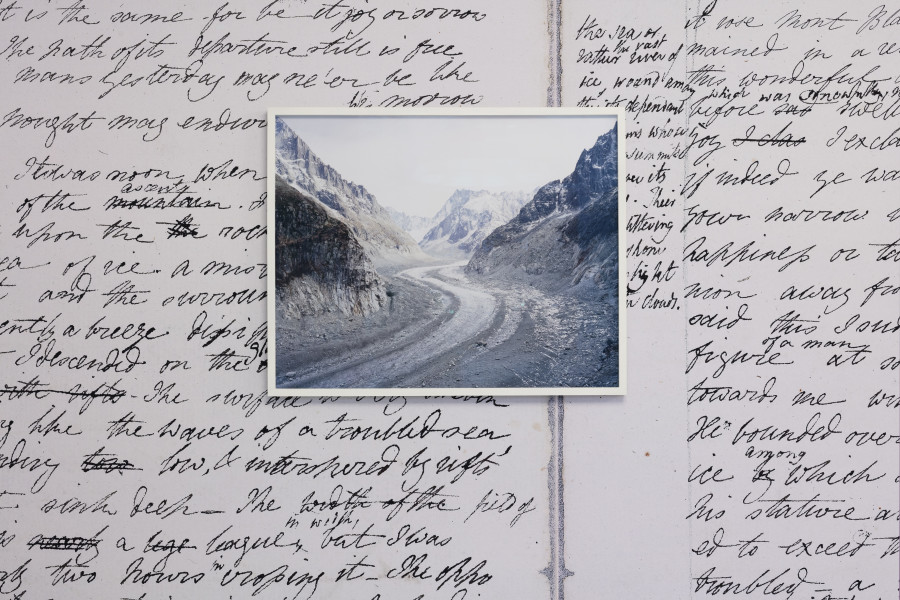 t is the same for be it joy or sorrow
The path of its departure still is free
Mans yesterday may ne'er be like
his morrow
Nought may endure
It was noon, when
ascent
of the mountain.
upon the the
of ice. a mist
and the surroun
ently a breeze dissip
I descended on the
with rifts. The surface is very uneven
like the waves of a troubled sea
nding low, & interspersed by rifts
sink deep_ The width of the field of
in width,
nearly a league, but I was
two hours in crossing it_ The oppo
the sea or
rather the vast river of
ice, wound among
its dependant
whose
its
glittering
shone
light
clouds.
it rose Mont Bla
mained in a re
this wonderful
which was
before sad
joy I exclai
If indeed ye wa
your narrow
happiness or ta
nion away fro
said this I sud
of a man
figure at so
towards me wi
He bounded over
among
ice by which
his stature a
ed to exceed th
troubled_ a